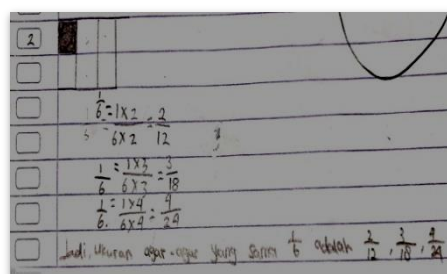 2
1/6 = 1x2/6x2 = 2/12
1/6 = 1x3/6x3 = 3/18
1/6 = 1x4/6x4 = 4/24
Jadi, ukuran agar-agar yang sama 1/6 adalah 2/12, 3/18, 4/24